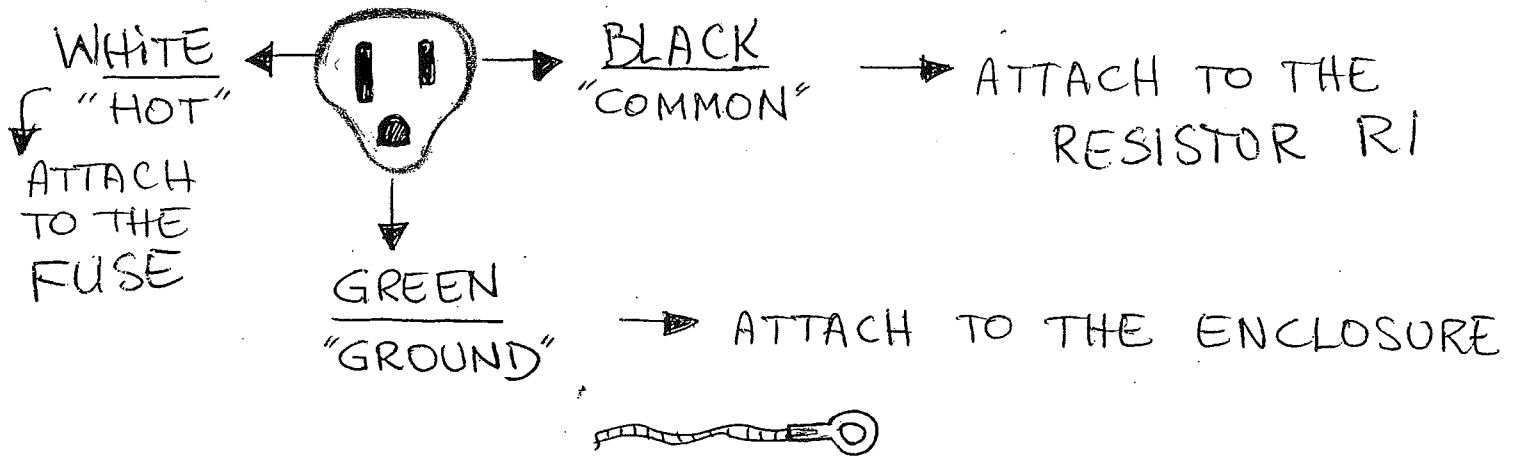 WHITE
"HOT"
ATTACH
TO THE
FUSE
BLACK
"COMMON"
ATTACH TO THE
RESISTOR R1
GREEN
"GROUND"
ATTACH TO THE ENCLOSURE